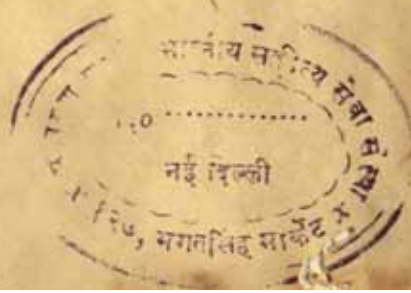 भारतीय साहित्य सेवा संस्था
नई दिल्ली
१२७, भगतसिंह मार्केट